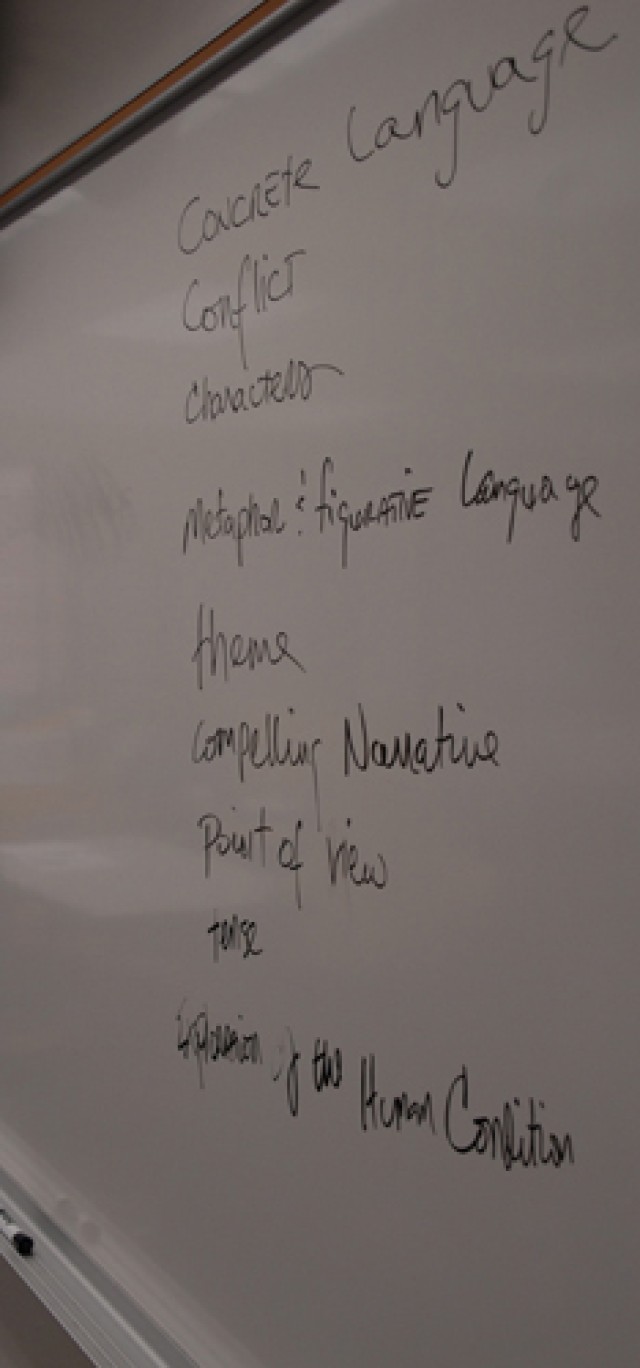 Concrete Language
Conflict
Characters
Metaphor & figurative Language
theme
Compelling Narrative
Point of view
tense
Exploration of the Human Condition